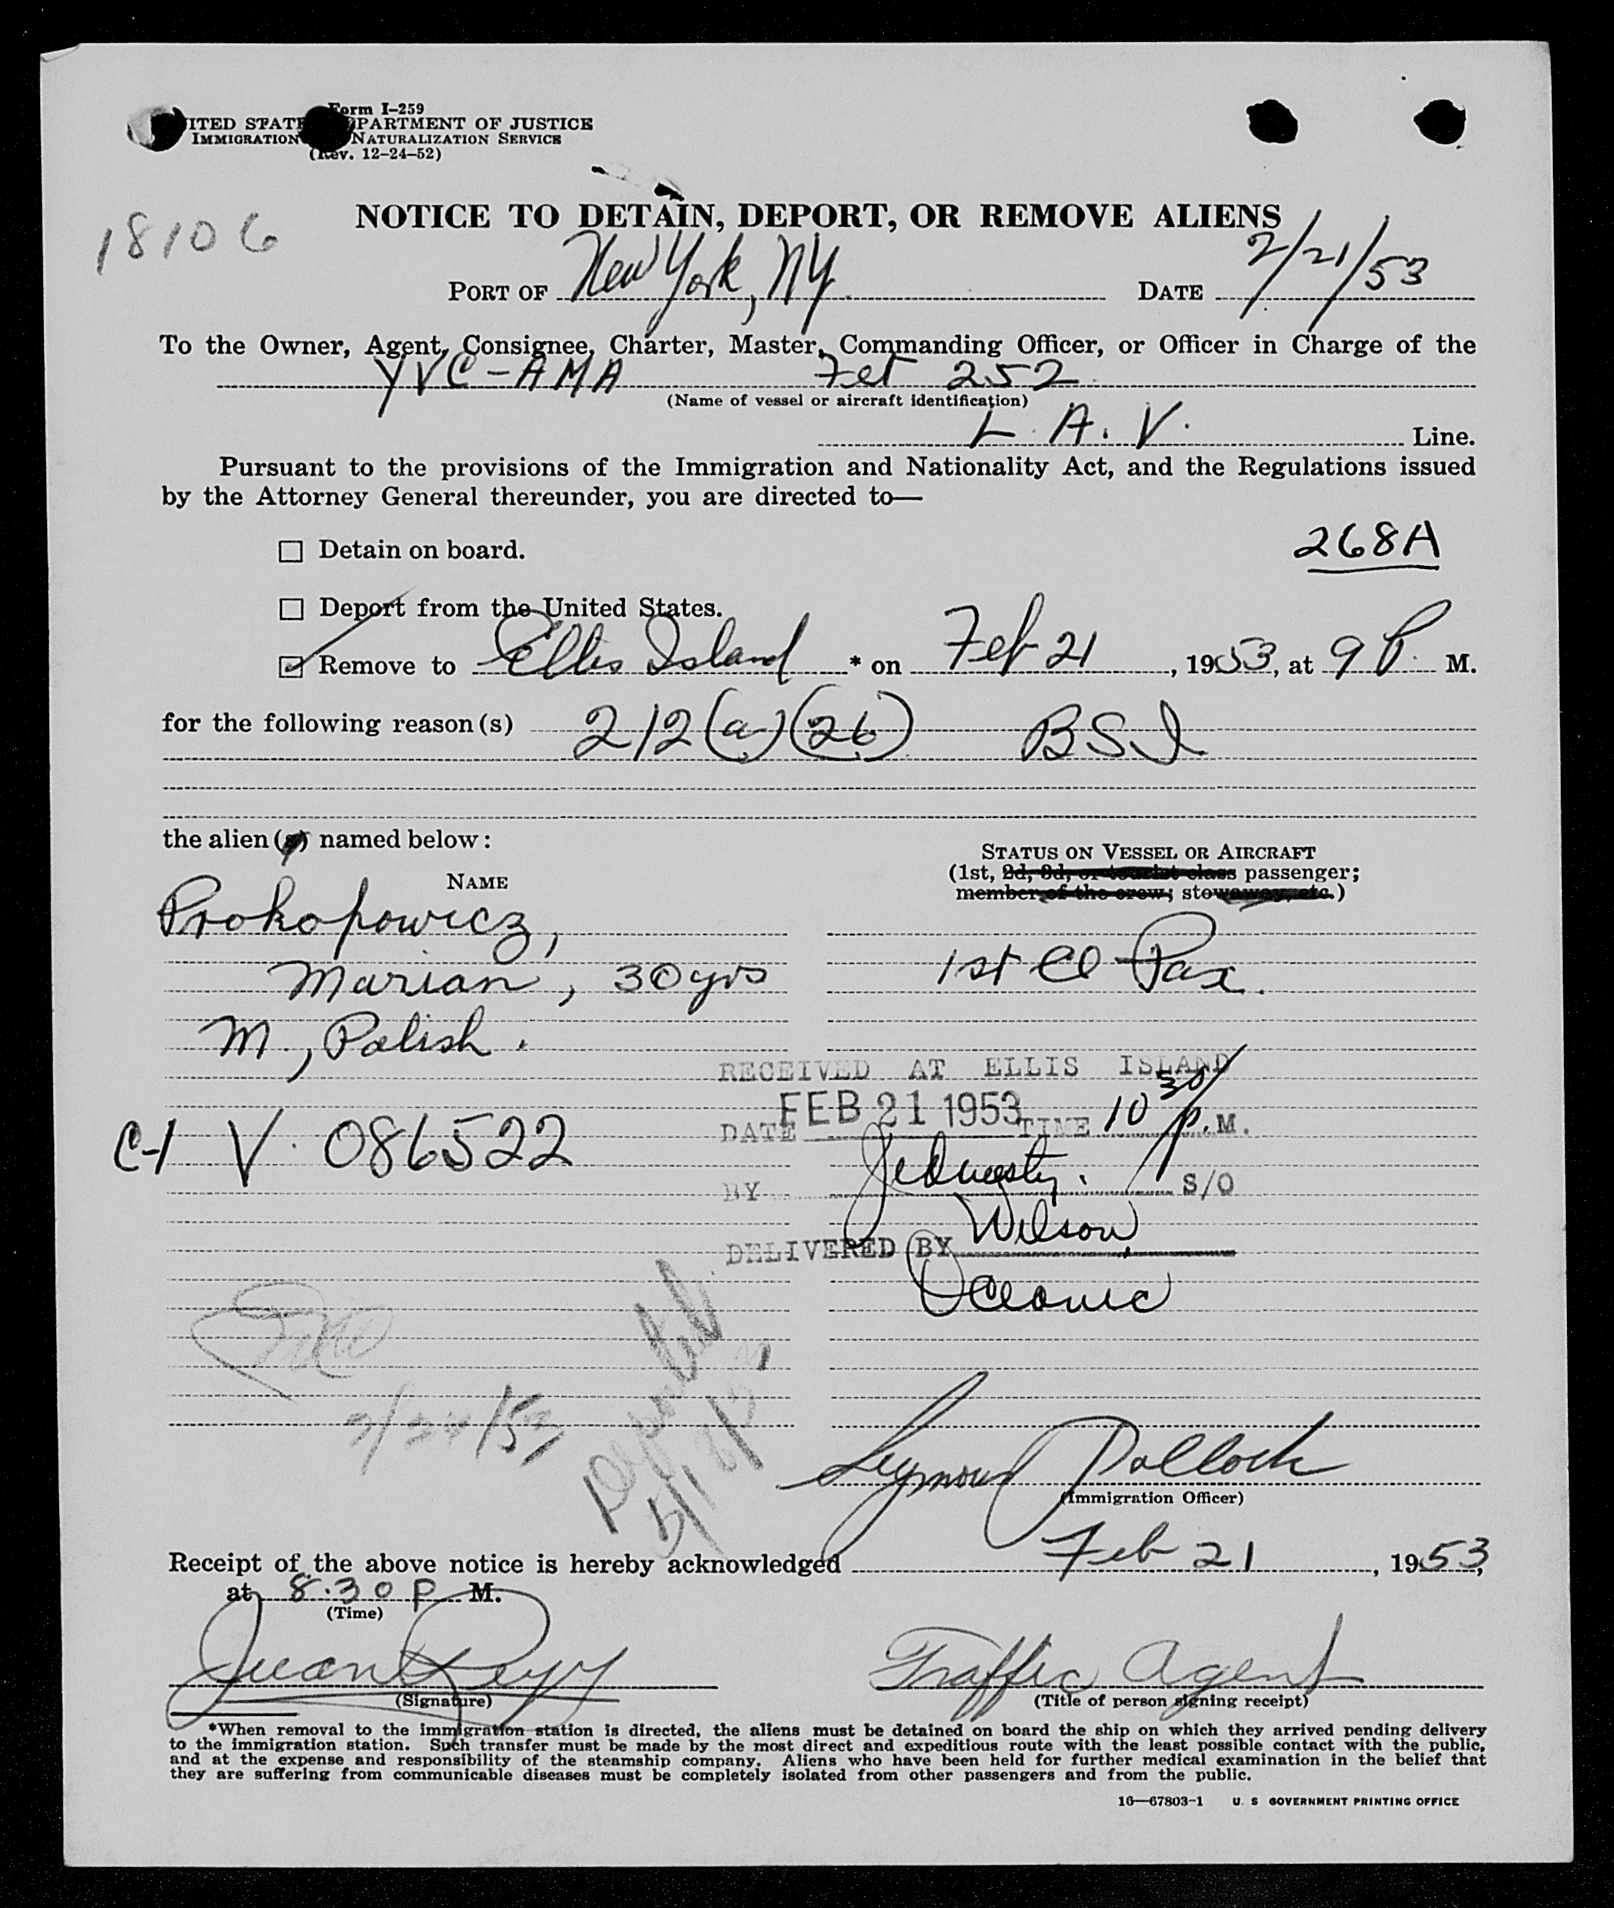 Form I-259
UNITED STATES DEPARTMENT OF JUSTICE
IMMIGRATION NATURALIZATION SERVICE
(Rev. 12-24-52)
18106
NOTICE TO DETAIN, DEPORT, OR REMOVE ALIENS
PORT OF New York, NY. DATE 2/21/53
To the Owner, Agent, Consignee, Charter, Master, Commanding Officer, or Officer in Charge of the
YVC-AMA 252
(Name of vessel or aircraft identification)
L. A. V. Line.
Pursuant to the provisions of the Immigration and Nationality Act, and the Regulations issued
by the Attorney General thereunder, you are directed to—
268A
☐ Detain on board.
☐ Deport from the United States.
☑ Remove to Ellis Island * on Feb 21, 1953, at 9 P. M.
for the following reason(s) 212(a)(26) BSI
the alien(s) named below:
STATUS ON VESSEL OR AIRCRAFT
(1st, 2d, 3d, or tourist class passenger;
member of the crew; stowaway, etc.)
NAME
Prokopowicz,
Marian, 30 yrs 1st Cl Pax.
M., Polish.
RECEIVED AT ELLIS ISLAND
DATE FEB 21 1953 TIME 10 30/P. M.
C-1 V. 086522
BY S/O
DELIVERED BY Wilson,
Oceanic
Deported
Seymour Pollock
(Immigration Officer)
Receipt of the above notice is hereby acknowledged Feb 21, 1953,
at 8:30 P M.
(Time)
Juan Traffic Agent
(Signature) (Title of person signing receipt)
*When removal to the immigration station is directed, the aliens must be detained on board the ship on which they arrived pending delivery
to the immigration station. Such transfer must be made by the most direct and expeditious route with the least possible contact with the public,
and at the expense and responsibility of the steamship company. Aliens who have been held for further medical examination in the belief that
they are suffering from communicable diseases must be completely isolated from other passengers and from the public.
16—67803-1 U. S GOVERNMENT PRINTING OFFICE